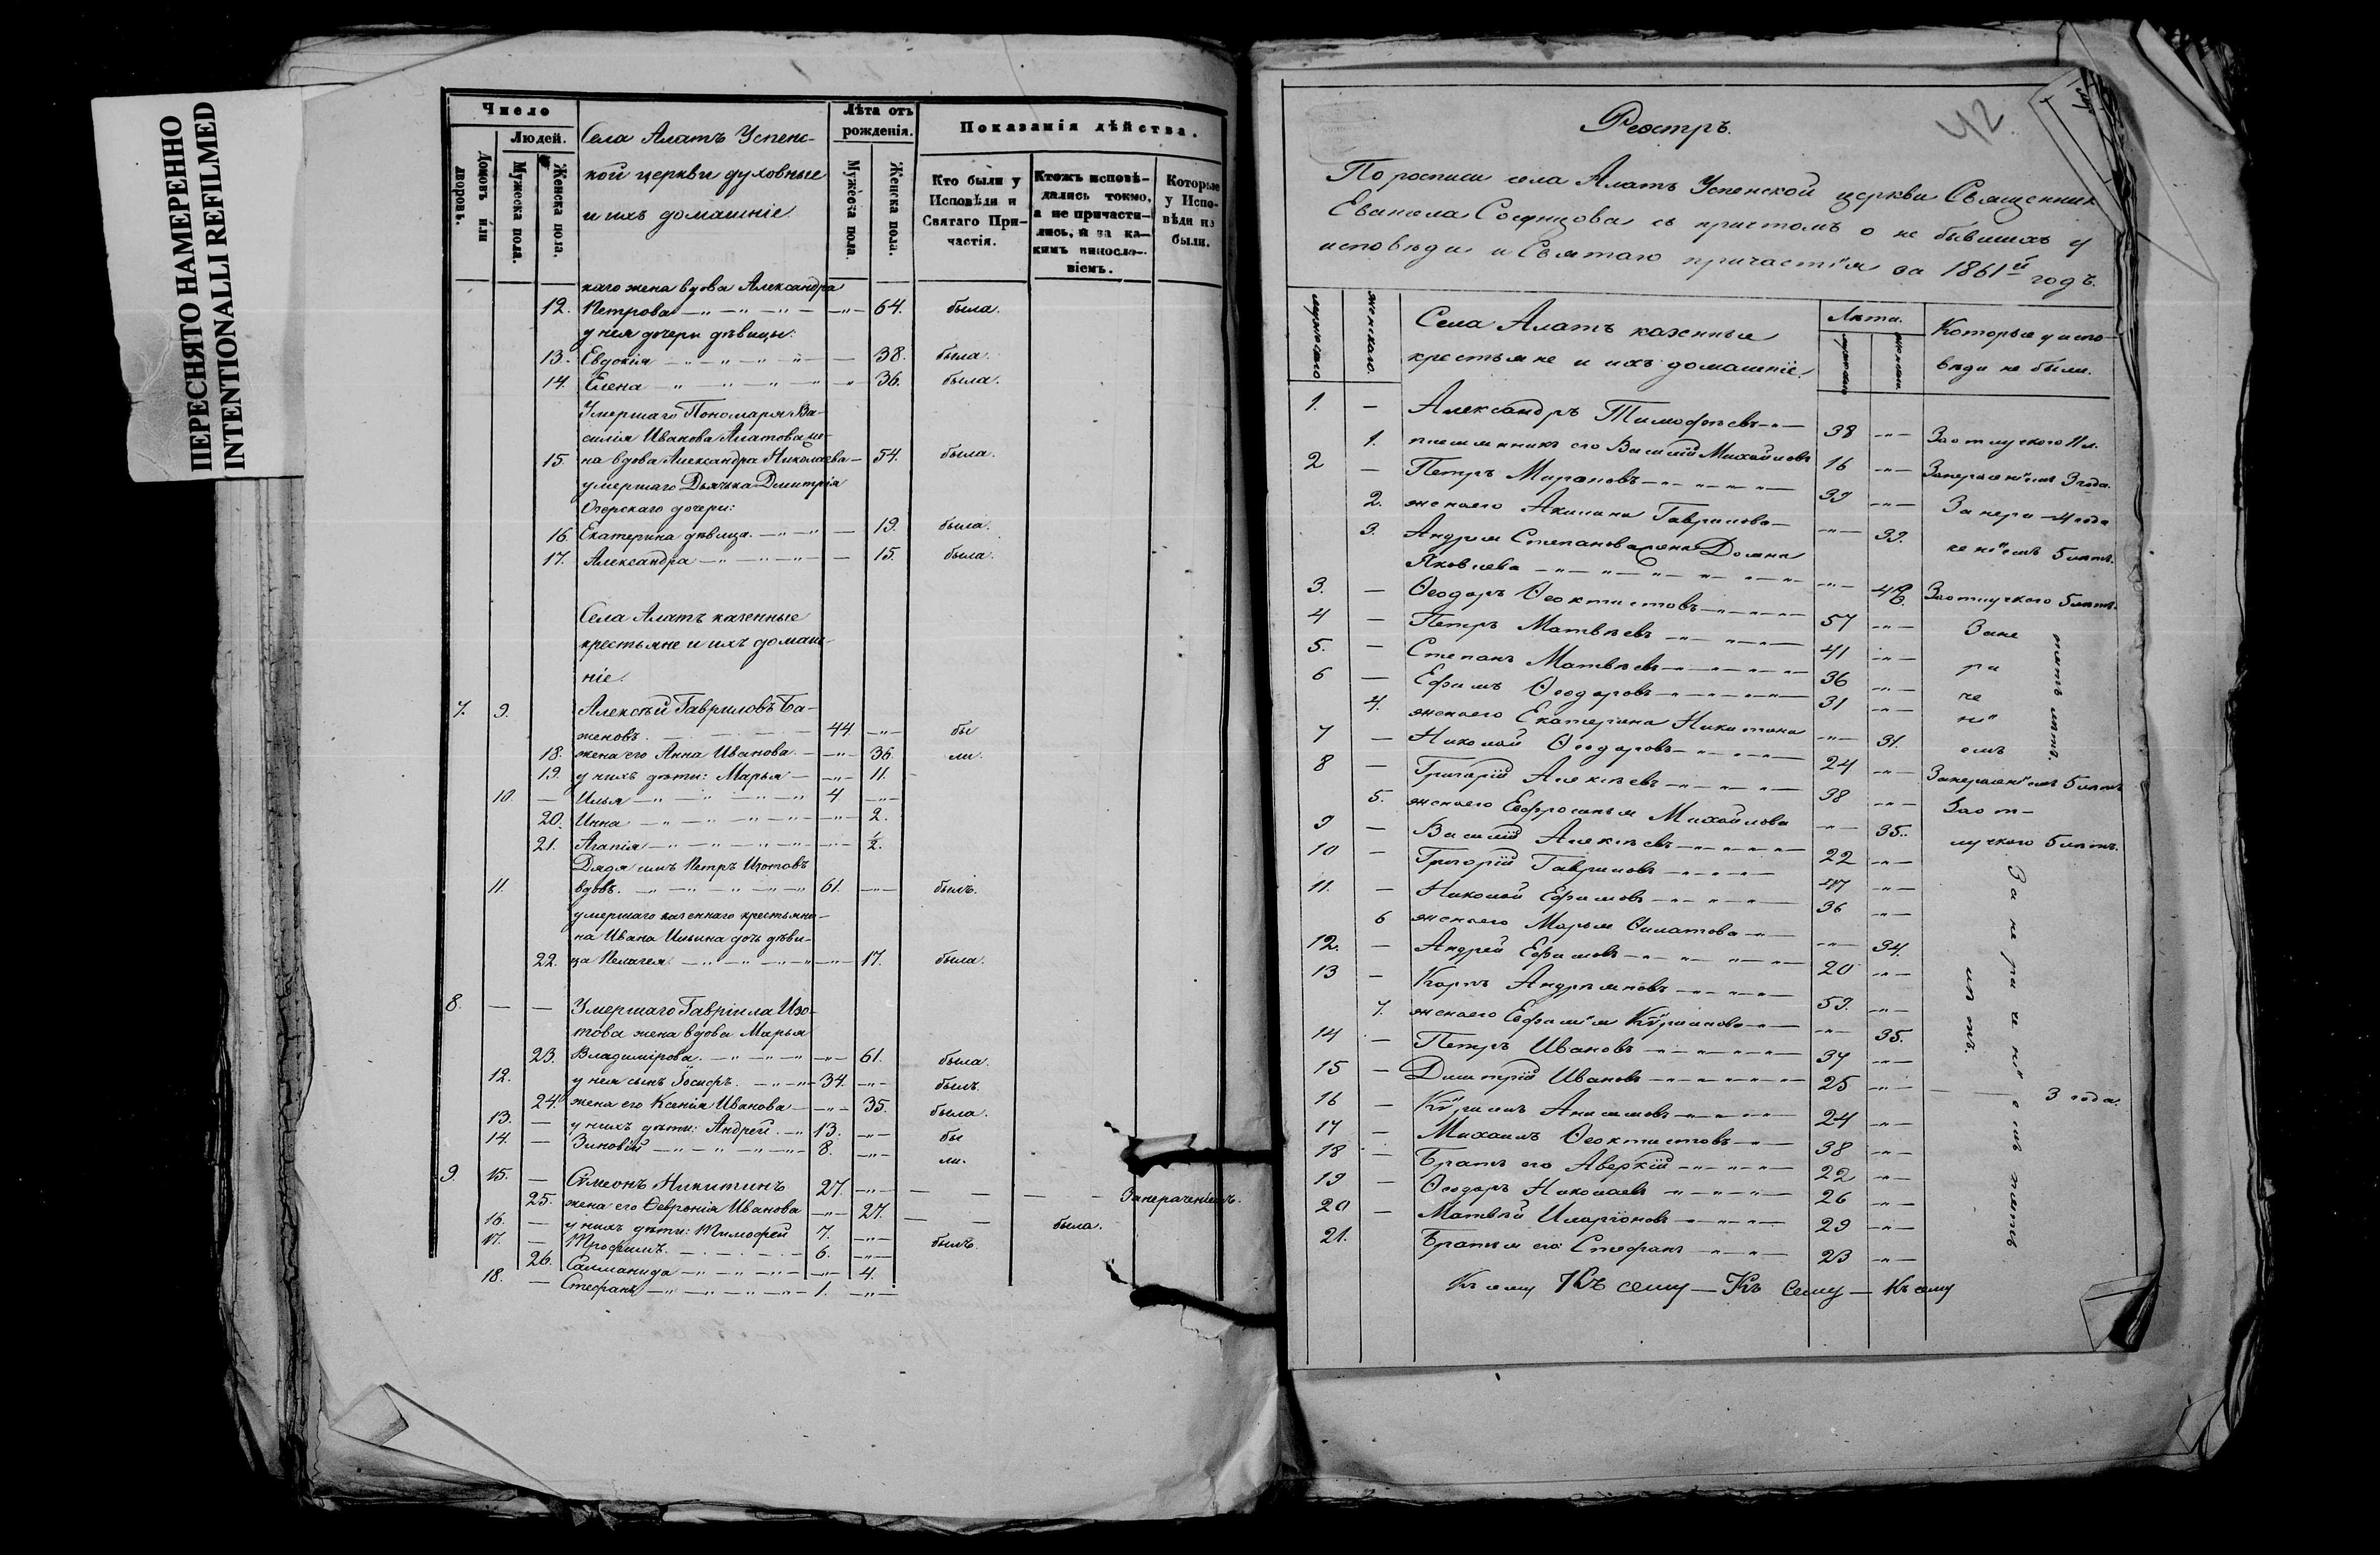 ПЕРЕСНЯТО НАМЕРЕННО
INTENTIONALLI REFILMED
Число
Людей.
Домовъ или дворовъ.
Мужеска пола.
Женска пола.
Села Алатъ Успенс-
кой церкви духовные
и ихъ домашніе.
Лѣта отъ рожденія.
Мужеска пола.
Женска пола.
Показанія дѣйства.
Кто были у Исповѣди и Святаго При-частія.
Ктожъ исповѣ-дались токмо, а не причасти-лись, и за ка-кимъ винослo-віемъ.
Которые у Испо-вѣди не были.
каго жена вдова Александра
12. Петрова — 64. была.
у нея дочери дѣвицы:
13. Евдокія — 38. была.
14. Елена — 36. была.
Умершаго Пономаря Ва-
силія Иванова Алатова же-
15. на вдова Александра Николаева — 54. была.
умершаго Дьячка Дмитрія
Озерскаго дочери:
16. Екатерина дѣвица. — 19. была.
17. Александра — 15. была.
Села Алатъ казенные
крестьяне и ихъ домаш-
ніе.
7. 9. Алексѣй Гавриловъ Ба-
женовъ. — 44. бы
18. жена его Анна Иванова. — 36. ли.
19. у нихъ дѣти: Марья — 11.
10. — Илья — 4.
20. Инна — 2.
21. Агапія — ½.
Дядя имъ Петръ Изотовъ
11. вдовъ. — 61. былъ.
умершаго казеннаго крестьяни-
на Ивана Ильина дочь дѣви-
22. ца Пелагея — 17. была.
8. — — Умершаго Гавріила Изо-
това жена вдова Марья
23. Владимірова. — 61. была.
12. у нея сынъ Іосифъ. — 34. былъ.
24. жена его Ксенія Иванова — 35. была.
13. — у нихъ дѣти: Андрей. — 13. бы
14. — Зиновій — 8. ли.
9. 15. — Сѵмеонъ Никитинъ 27. — Занераченіемъ.
25. жена его Ѳевронія Иванова — 27. — была.
16. — у нихъ дѣти: Тимофей 7. былъ.
17. — Трофимъ. — 6.
26. Саломанида — 4.
18. — Стефанъ — 1.
42
Реэстръ.
По росписи села Алатъ Успенской церкви Священник
Солнцова съ причтомъ о не бывшихъ у
исповѣди и Святаго причастія за 1861й годъ.
мужескаго
женскаго.
Села Алатъ казенные
крестьяне и ихъ домашніе.
Лѣта.
Которые у испо-
вѣди не были.
1. — Александръ Тимофѣевъ — 38 — За отлучкою 11 л.
1. племянникъ его Василій Михайловъ 16 — Занераченіемъ 3 года.
2 — Петръ Мироновъ — 39 — За нера — 4 года
2. жена его Акилина Гаврилова — 39. че ніемъ 5 лѣтъ.
3. Андрея Степанова жена Домна
Яковлева — За отлучкою 5 лѣтъ.
3. — Ѳеодоръ Ѳеоктистовъ — 57 — Зане
4 — Петръ Матвѣевъ — 41 — ра
5. — Степанъ Матвѣевъ — 36 — че
6 — Ефимъ Ѳеодоровъ — 31 — ні
4. жена его Екатерина Никитина — 31. емъ
пять лѣтъ.
7 — Николай Ѳеодоровъ — 24 — Занераченіемъ 5 лѣтъ
8 — Григорій Алексѣевъ — 38 — За от-
5. жена его Евфросинья Михайлова — 35. лучкою 5 лѣтъ.
9 — Василій Алексѣевъ — 22 —
10 — Григорій Гавриловъ —
11. — Николай Ефимовъ — 36 —
6 жена его Марья Филатова — 34.
12. — Андрей Ефимовъ — 20 —
13 — Карпъ Андреяновъ — 59. —
7. жена его Евфимія Кѵріянова — 35.
14 — Петръ Ивановъ — 37 —
15 — Дмитрій Ивановъ — 25 — 3 года.
16 — Кѵрилъ Анисимовъ — 24 —
17 — Михаилъ Ѳеоктистовъ — 38 —
18 — Братъ его Аверкій — 22 —
19 — Ѳеодоръ Николаевъ — 26 —
20 — Матвѣй Иларіоновъ — 29 —
21. Братья его: Стефанъ — 23 —
За нераченіемъ пять
лѣтъ.
Къ сему Къ сему — Къ Сему — Къ сему